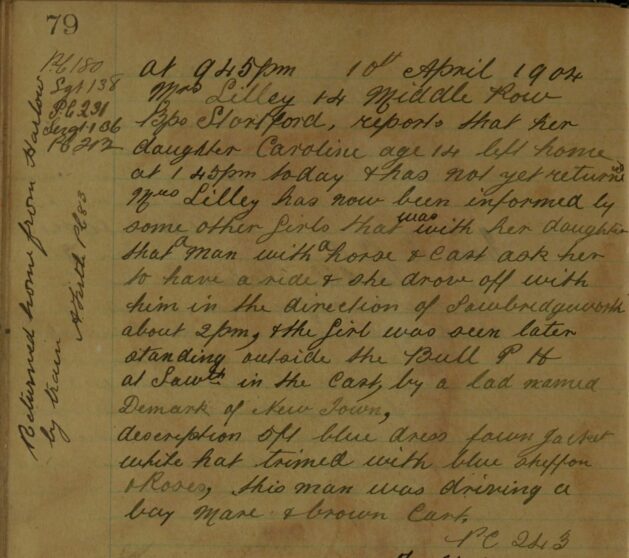 79
PC 180
Sgt 138
PC 291
Sergt 136
PC 212
Returned home from Harlow
by train
PC 83
at 9 45pm 10th April 1904
Mrs Lilley 14 Middle Row
Bps Stortford, reports that her
daughter Caroline age 14 left home
at 1 45pm today & has not yet returned
Mrs Lilley has now been informed by
some other Girls that was with her daughter
that a Man with a horse & Cart ask her
to have a ride & she drove off with
him in the direction of Sawbridgeworth
about 2pm, & the Girl was seen later
standing outside the Bull P H
at Sawth in the Cart, by a lad named
Demark of New Town,
description 5ft blue dress fawn Jacket
white hat trimed with blue sheffon
& Roses, this man was driving a
bay Mare & brown Cart.
PC 243